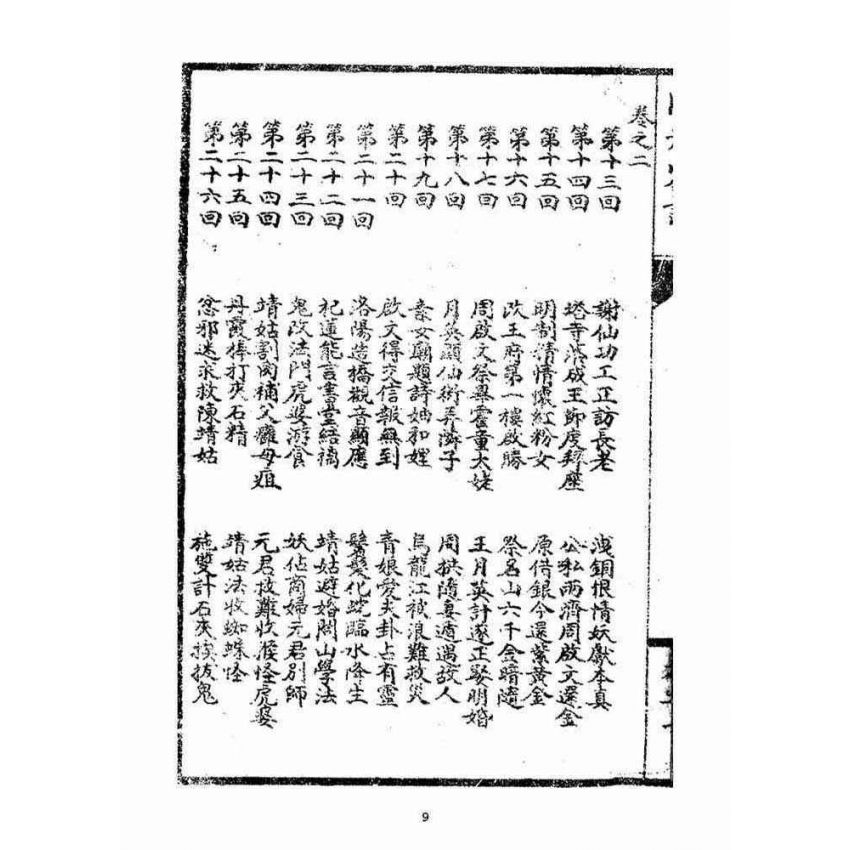 卷之二
第十三回 謝仙功工正訪長老 洩銅恨情妖獻本真
第十四回 塔寺落成王節度拜塵 公私兩濟周啟文選金
第十五回 明制精情懷紅粉女 原借銀今還紫黃金
第十六回 改王府第一樓啟勝 祭名山六千金暗隨
第十七回 周啟文祭舉霍童大姥 王月英計遂正娶明婚
第十八回 月英顯仙術弄濟子 周拱隨妻遁遇故人
第十九回 女廟題詩妯和娌 烏龍江被浪難救災
第二十回 啟文得交信報無到 青娘愛夫卦占有靈
第二十一回 洛陽造橋觀音顯應 鬢髮化蛇臨水降生
第二十二回 祀蓮能言書堂結禍 靖姑避婚閭山學法
第二十三回 鬼改法門虎婆游食 妖佔商婦元君別師
第二十四回 靖姑割肉補父癰母疽 元君救難收猴怪虎婆
第二十五回 丹霞捧打夾石精 靖姑法收蜘蛛怪
第二十六回 邪迷求救陳靖姑 施雙計石夾挨拔鬼
9